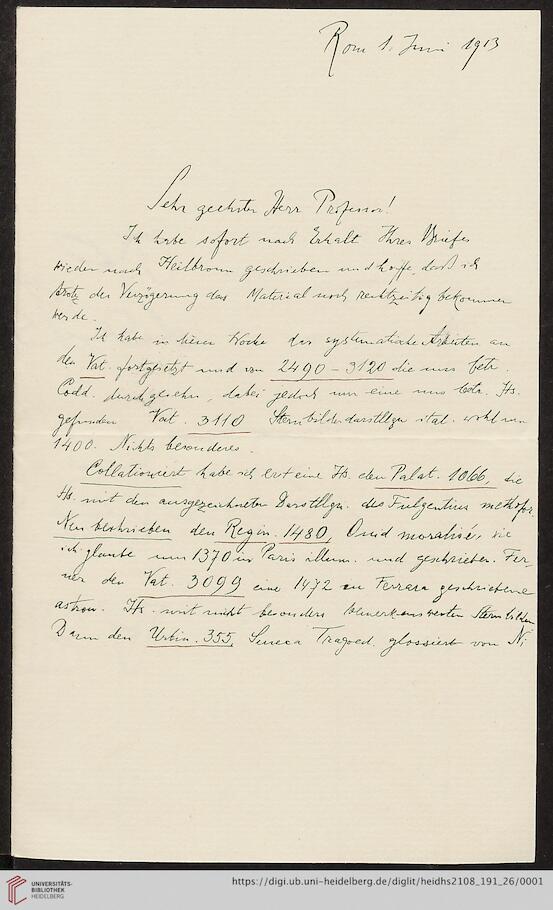 Rom 1. Juni 1913
Sehr geehrter Herr Professor!
Ich habe sofort nach Erhalt Ihres Briefes
wieder nach Heilbronn geschrieben und hoffe, daß ich
trotz der Verzögerung das Material noch rechtzeitig bekommen
werde.
Ich habe in dieser Woche die systematische Arbeiten an
den Vat. fortgesetzt und von 2490 – 3120 die uns betr.
Codd. durchgesehen, dabei jedoch nur eine uns betr. Hs.
gefunden Vat. 3110 Sternbilderdarstllgn ital. wohl um
1400. Nichts besonderes.
Collationiert habe ich erst eine Hs. den Palat. 1066, die
Hs. mit den ausgezeichneten Darstllgn. des Fulgentius metafor.
Neu beschrieben den Regin. 1480, Ovid moralisé, die
ich glaube um 1370 in Paris illum. und geschrieben. Fer-
ner den Vat. 3099 eine 1472 in Ferrara geschriebene
astron. Hs. mit nicht besonders bemerkenswerten Sternbildern
Dann den Urbin. 355, Seneca Tragoed. glossiert von Ni
UNIVERSITÄTS-
BIBLIOTHEK
HEIDELBERG
https://digi.ub.uni-heidelberg.de/diglit/heidhs2108_191_26/0001